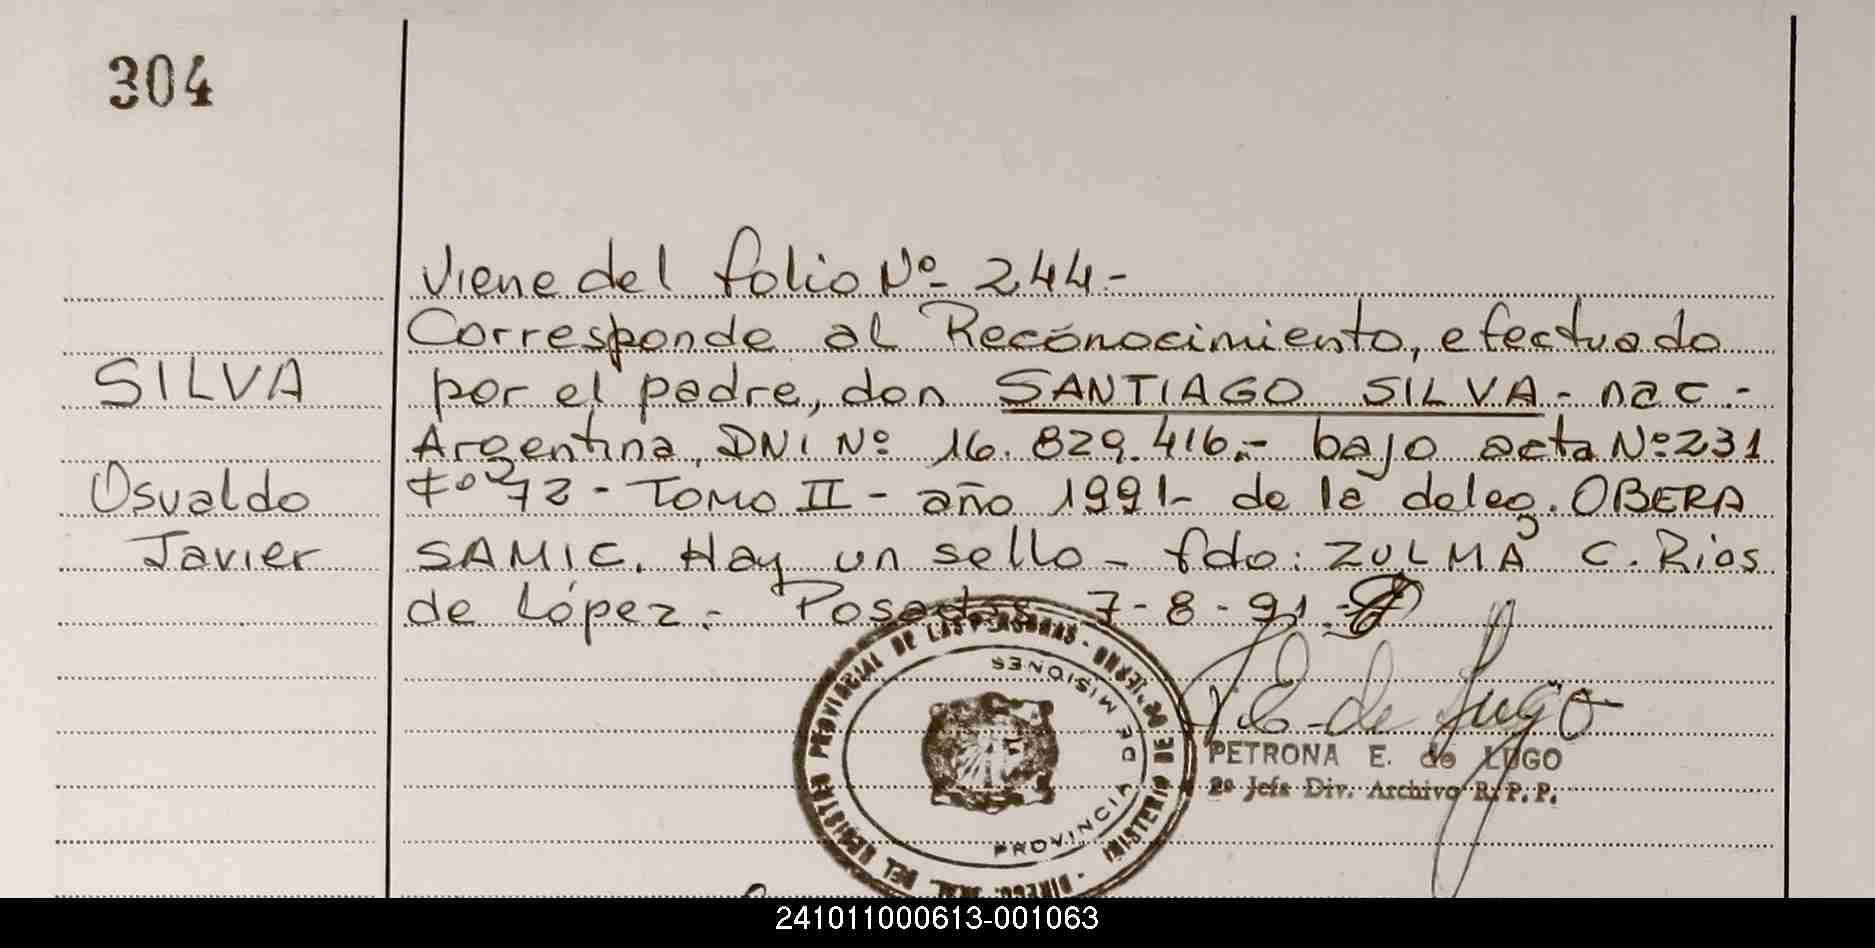 304
Viene del folio Nº 244-
Corresponde al Reconocimiento, efectuado
SILVA por el padre, don SANTIAGO SILVA - nac -
Argentina, DNI Nº 16.829.416.- bajo acta Nº 231
Osvaldo Fº 72 - Tomo II - año 1991- de la deleg. OBERA
Javier SAMIC. Hay un sello - fdo: ZULMA C. Rios
de López.- Posadas 7-8-91.-
P. E. de Lugo
PETRONA E. de LUGO
2º Jefa Div. Archivo R. P. P.
DEL REGISTRO PROVINCIAL DE LAS PERSONAS - MINISTERIO DE GOBIERNO -
PROVINCIA DE MISIONES
241011000613-001063